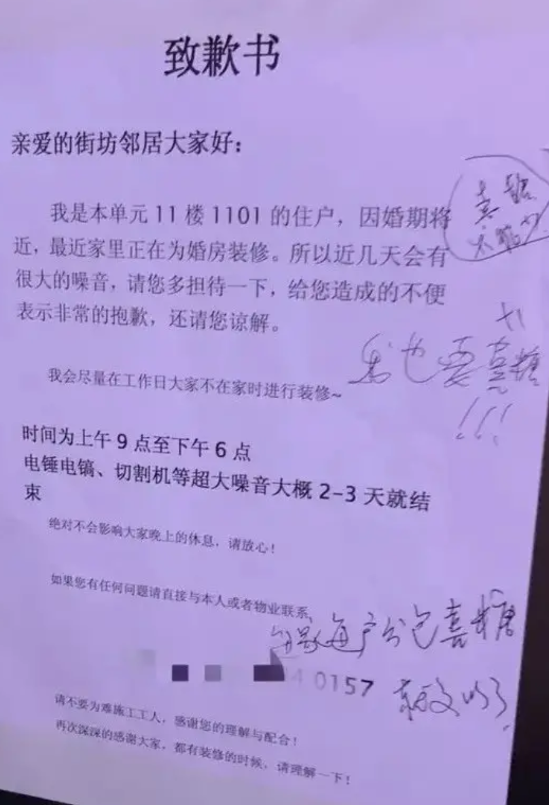 致歉书
亲爱的街坊邻居大家好：
喜糖
不能少
我是本单元11楼1101的住户，因婚期将
近，最近家里正在为婚房装修。所以近几天会有
很大的噪音，请您多担待一下，给您造成的不便
表示非常的抱歉，还请您谅解。
+1
我也要喜糖
!!!
我会尽量在工作日大家不在家时进行装修~
时间为上午9点至下午6点
电锤电镐、切割机等超大噪音大概2-3天就结
束
绝对不会影响大家晚上的休息，请放心！
如果您有任何问题请直接与本人或者物业联系
每户分包喜糖
0157
请不要为难施工工人，感谢您的理解与配合！
再次深深的感谢大家，都有装修的时候，请理解一下！